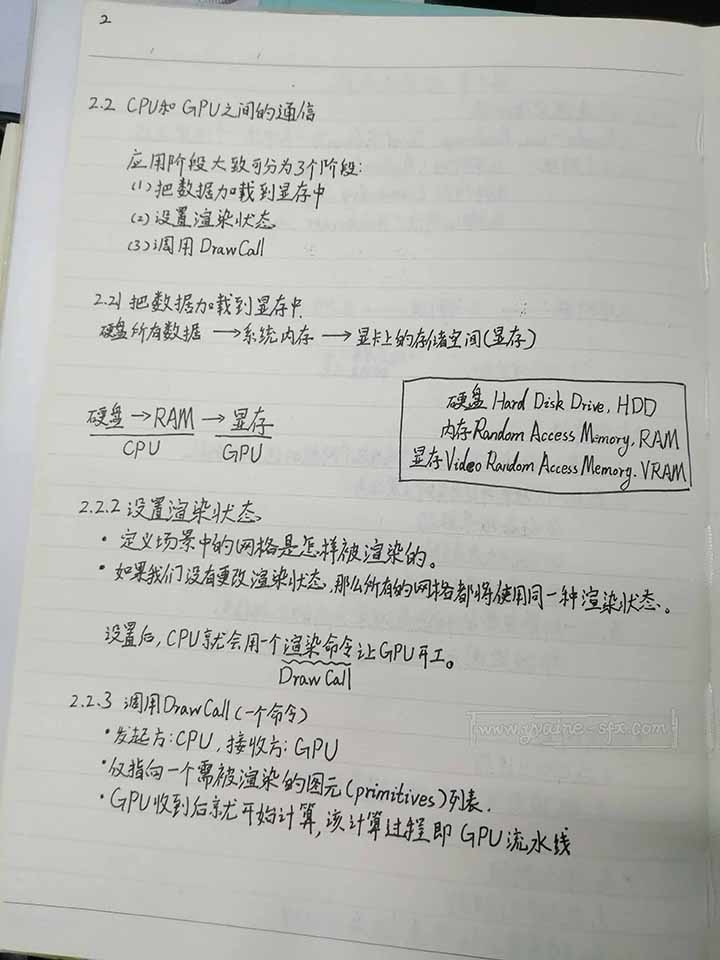 2
2.2 CPU和GPU之间的通信
应用阶段大致可分为3个阶段:
(1)把数据加载到显存中
(2)设置渲染状态
(3)调用DrawCall
2.21 把数据加载到显存中.
硬盘所有数据 →系统内存 → 显卡上的存储空间(显存)
硬盘 → RAM → 显存
CPU GPU
硬盘 Hard Disk Drive, HDD
内存 Random Access Memory, RAM
显存 Video Random Access Memory. VRAM
2.2.2 设置渲染状态
· 定义场景中的网格是怎样被渲染的。
· 如果我们没有更改渲染状态,那么所有的网格都将使用同一种渲染状态。
设置后, CPU就会用一个渲染命令让GPU开工。
Draw Call
2.2.3 调用DrawCall(一个命令)
· 发起方: CPU, 接收方: GPU
· 仅指向一个需被渲染的图元(primitives)列表.
· GPU收到后就开始计算, 该计算过程即 GPU流水线